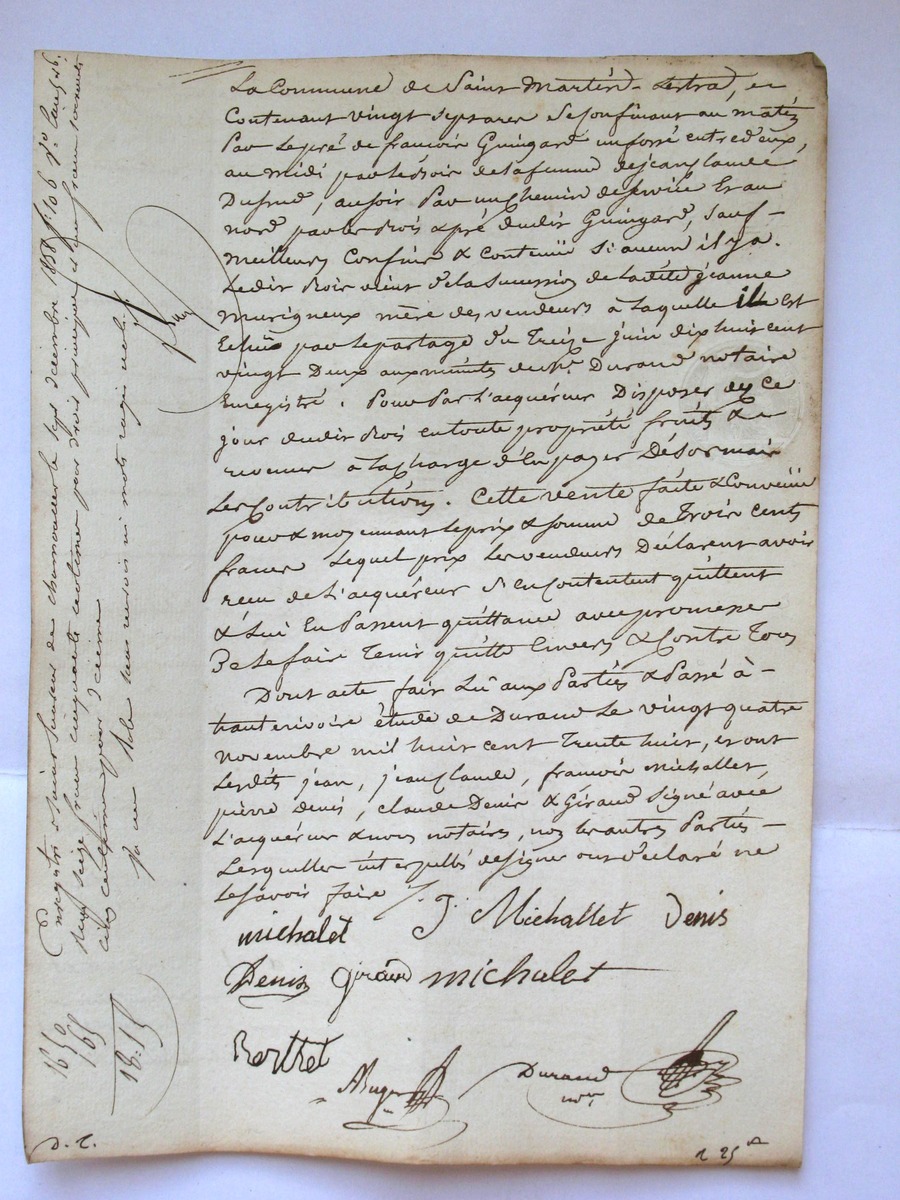 La Commune de Saint Martin-Lestra, et
Contenant vingt sept ares se Confinant au matin
Par le pré de françois Guingard un fossé entre deux,
au midi par le bois de la femme de jean Claude
Dufrud, au soir Par un Chemin de service Et au
nord par les bois & pré dudit Guingard, Sauf-
meilleurs Confins & Contenüe Si aucun il y a.
Ledit bois vient de la Succession de ladite jeanne
Murigneux mère des vendeurs à laquelle il Est
Echüs par le partage du Treize juin dix huit cent
vingt Deux aux minutes du Me. Durand notaire
Enregistré. Pour Par l'acquéreur Disposer dès Ce
jour dudit bois en toute propriété fruits &
revenus à la Charge d'en payer Désormais
Les Contributions. Cette vente faite & Convenüe
pour & moyennant le prix & somme de Trois cents
francs Lequel prix Les vendeurs Déclarent avoir
reçu de L'acquéreur S'en Contentent quittent
& Lui En Passent quittance avec promesse
De le faire Tenir quitte Envers & Contre Tous
Dont acte fait Lû aux Parties & Passé à-
hauterivoire étude de Durand Le vingt quatre
novembre mil huit cent Trente huit, et ont
Lesdits jean, jean Claude, françois Michallet,
pierre Denis, Claude Denis & Giraud Signé avec
L'acquéreur & nous notaires, non les autres Parties-
Lesquelles interpellés de signer ont déclaré ne
Le savoir faire
michalet J. Michallet Denis
Denis Giraud michalet
Berthet
Durand
nore
D. C.
1 25
Enregistré à
sept Décembre 1838 fo. 106
seize francs cinquante centimes pour droit principal et un franc soixante
cinq centimes pour Décime
16 50
1 65
18.15